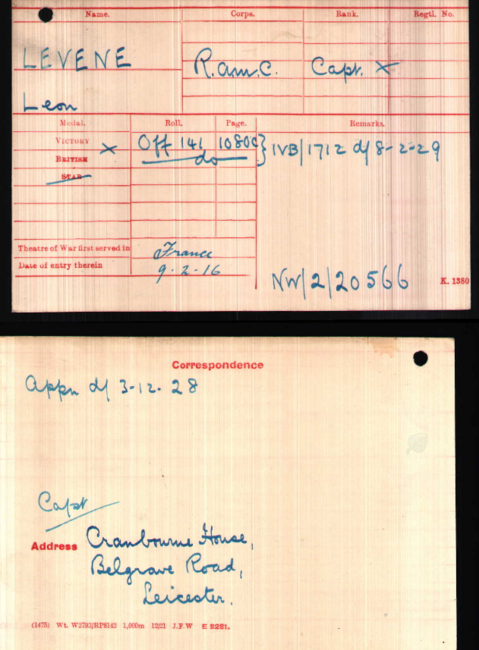 Name. Corps. Rank. Regtl. No.
LEVENE R.A.M.C. Capt. X
Leon
Medal. Roll. Page. Remarks.
VICTORY X Off 141 1080C } IVB/1712 d/ 8-2-29
BRITISH do
STAR
Theatre of War first served in France
Date of entry therein 9-2-16
NW/2/20566 K. 1380
Correspondence
Appn d/ 3-12-28
Capt
Address Cranbourne House,
Belgrave Road,
Leicester.
(1475) Wt. W2793/RP6142 1,000m 12/21 J.F.W E 9281.